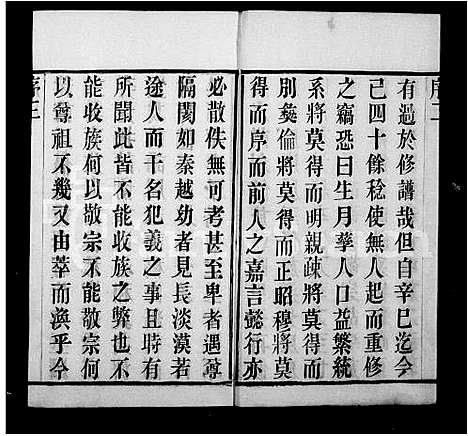 序二
有過於修譜哉但自辛巳迄今
己四十餘稔使無人起而重修
之竊恐日生月孳人口益繁統
系將莫得而明親疎將莫得而
別彜倫將莫得而正昭穆將莫
得而序而前人之嘉言懿行亦
必散佚無可考甚至卑者遇尊
隔閡如秦越幼者見長淡漠若
途人而干名犯義之事且時有
所聞此皆不收族之弊也不
能收族何以敬宗不能敬宗何
以尊祖不幾又由萃而渙乎今
序三